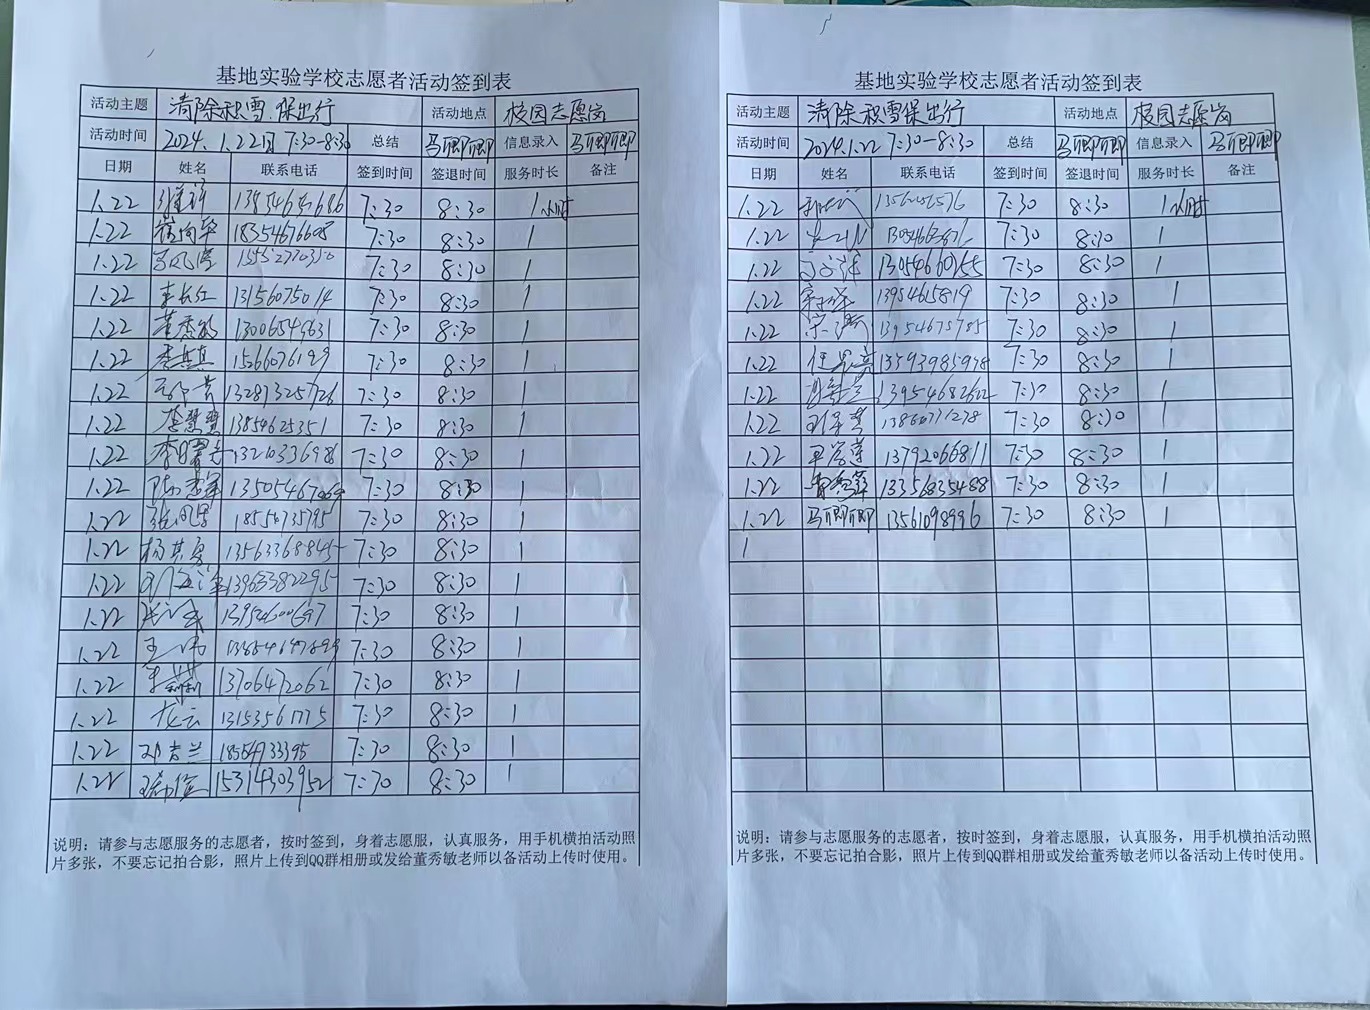 基地实验学校志愿者活动签到表
活动主题 清除积雪.保出行 活动地点 校园志愿岗
活动时间 2024.1.22日 7:30-8:30 总结 马卿卿 信息录入 马卿卿
日期 姓名 联系电话 签到时间 签退时间 服务时长 备注
1.22 7:30 8:30 1小时
1.22 崔向华 18354676608 7:30 8:30 1
1.22 7:30 8:30 1
1.22 李长红 13156075014 7:30 8:30 1
1.22 董秀敏 13006549631 7:30 8:30 1
1.22 李真真 15266076199 7:30 8:30 1
1.22 13281325726 7:30 8:30 1
1.22 李慧慧 13854625351 7:30 8:30 1
1.22 13210336986 7:30 8:30 1
1.22 7:30 8:30 1
1.22 7:30 8:30 1
1.22 杨其勇 13563368845 7:30 8:30 1
1.22 13963382295 7:30 8:30 1
1.22 13954600697 7:30 8:30 1
1.22 王伟 7:30 8:30 1
1.22 李莉莉 13706472062 7:30 8:30 1
1.22 龙云 13153561775 7:30 8:30 1
1.22 邓吉兰 18554733395 7:30 8:30 1
1.22 15314303952 7:30 8:30 1
说明：请参与志愿服务的志愿者，按时签到，身着志愿服，认真服务，用手机横拍活动照
片多张，不要忘记拍合影，照片上传到QQ群相册或发给董秀敏老师以备活动上传时使用。
基地实验学校志愿者活动签到表
活动主题 清除积雪保出行 活动地点 校园志愿岗
活动时间 2024.1.22 7:30-8:30 总结 马卿卿 信息录入 马卿卿
日期 姓名 联系电话 签到时间 签退时间 服务时长 备注
1.22 7:30 8:30 1小时
1.22 7:30 8:30 1
1.22 13054660255 7:30 8:30 1
1.22 13954615819 7:30 8:30 1
1.22 13954675785 7:30 8:30 1
1.22 任景亮 13593985998 7:30 8:30 1
1.22 13954682622 7:30 8:30 1
1.22 7:30 8:30 1
1.22 13792066811 7:30 8:30 1
1.22 13356835488 7:30 8:30 1
1.22 马卿卿 13561098996 7:30 8:30 1
1
说明：请参与志愿服务的志愿者，按时签到，身着志愿服，认真服务，用手机横拍活动照
片多张，不要忘记拍合影，照片上传到QQ群相册或发给董秀敏老师以备活动上传时使用。